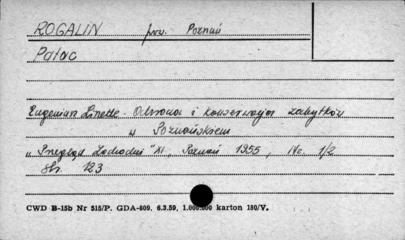 ROGALIN pow. Poznań
Pałac
Eugeniusz Linette - Odsnowa i konserwacja zabytków
w Poznańskiem
"Przegląd Zachodni" XI, Poznań 1955, Nr. 1/2
Str. 123
CWD B-15b Nr 515/P. GDA-809. 6.3.59, 1.000.000 karton 180/V.